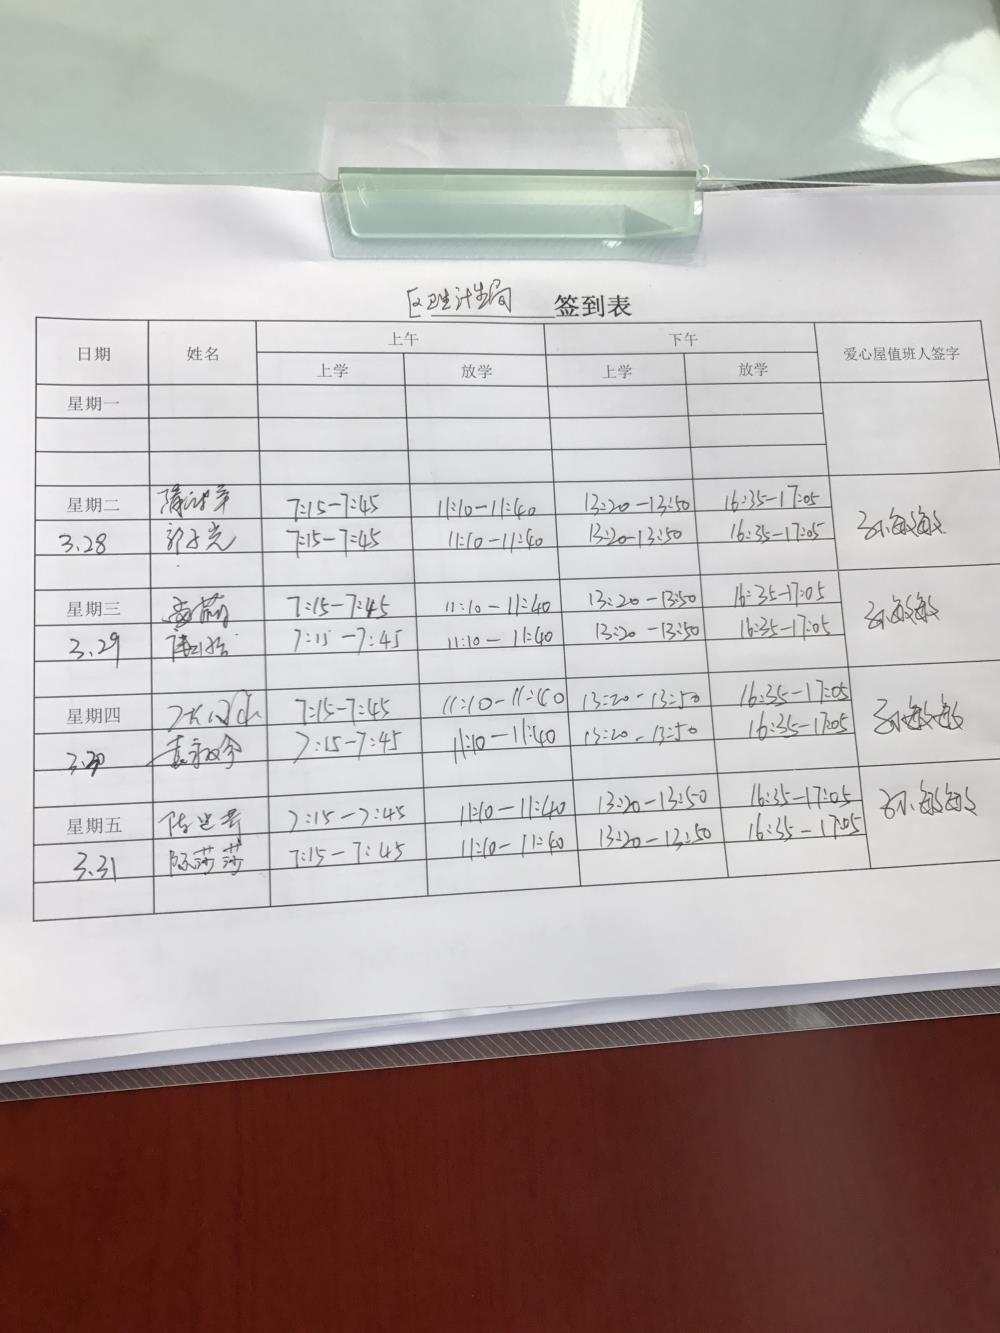 区卫生计生局 签到表
日期 姓名 上午 下午 爱心屋值班人签字
上学 放学 上学 放学
星期一
星期二 7:15-7:45 11:10-11:40 13:20-13:50 16:35-17:05
3.28 7:15-7:45 11:10-11:40 13:20-13:50 16:35-17:05 孙敏敏
星期三 7:15-7:45 11:10-11:40 13:20-13:50 16:35-17:05
3.29 7:15-7:45 11:10-11:40 13:20-13:50 16:35-17:05 孙敏敏
星期四 7:15-7:45 11:10-11:40 13:20-13:50 16:35-17:05
3.30 7:15-7:45 11:10-11:40 13:20-13:50 16:35-17:05 孙敏敏
星期五 7:15-7:45 11:10-11:40 13:20-13:50 16:35-17:05 孙敏敏
3.31 陈莎莎 7:15-7:45 11:10-11:40 13:20-13:50 16:35-17:05